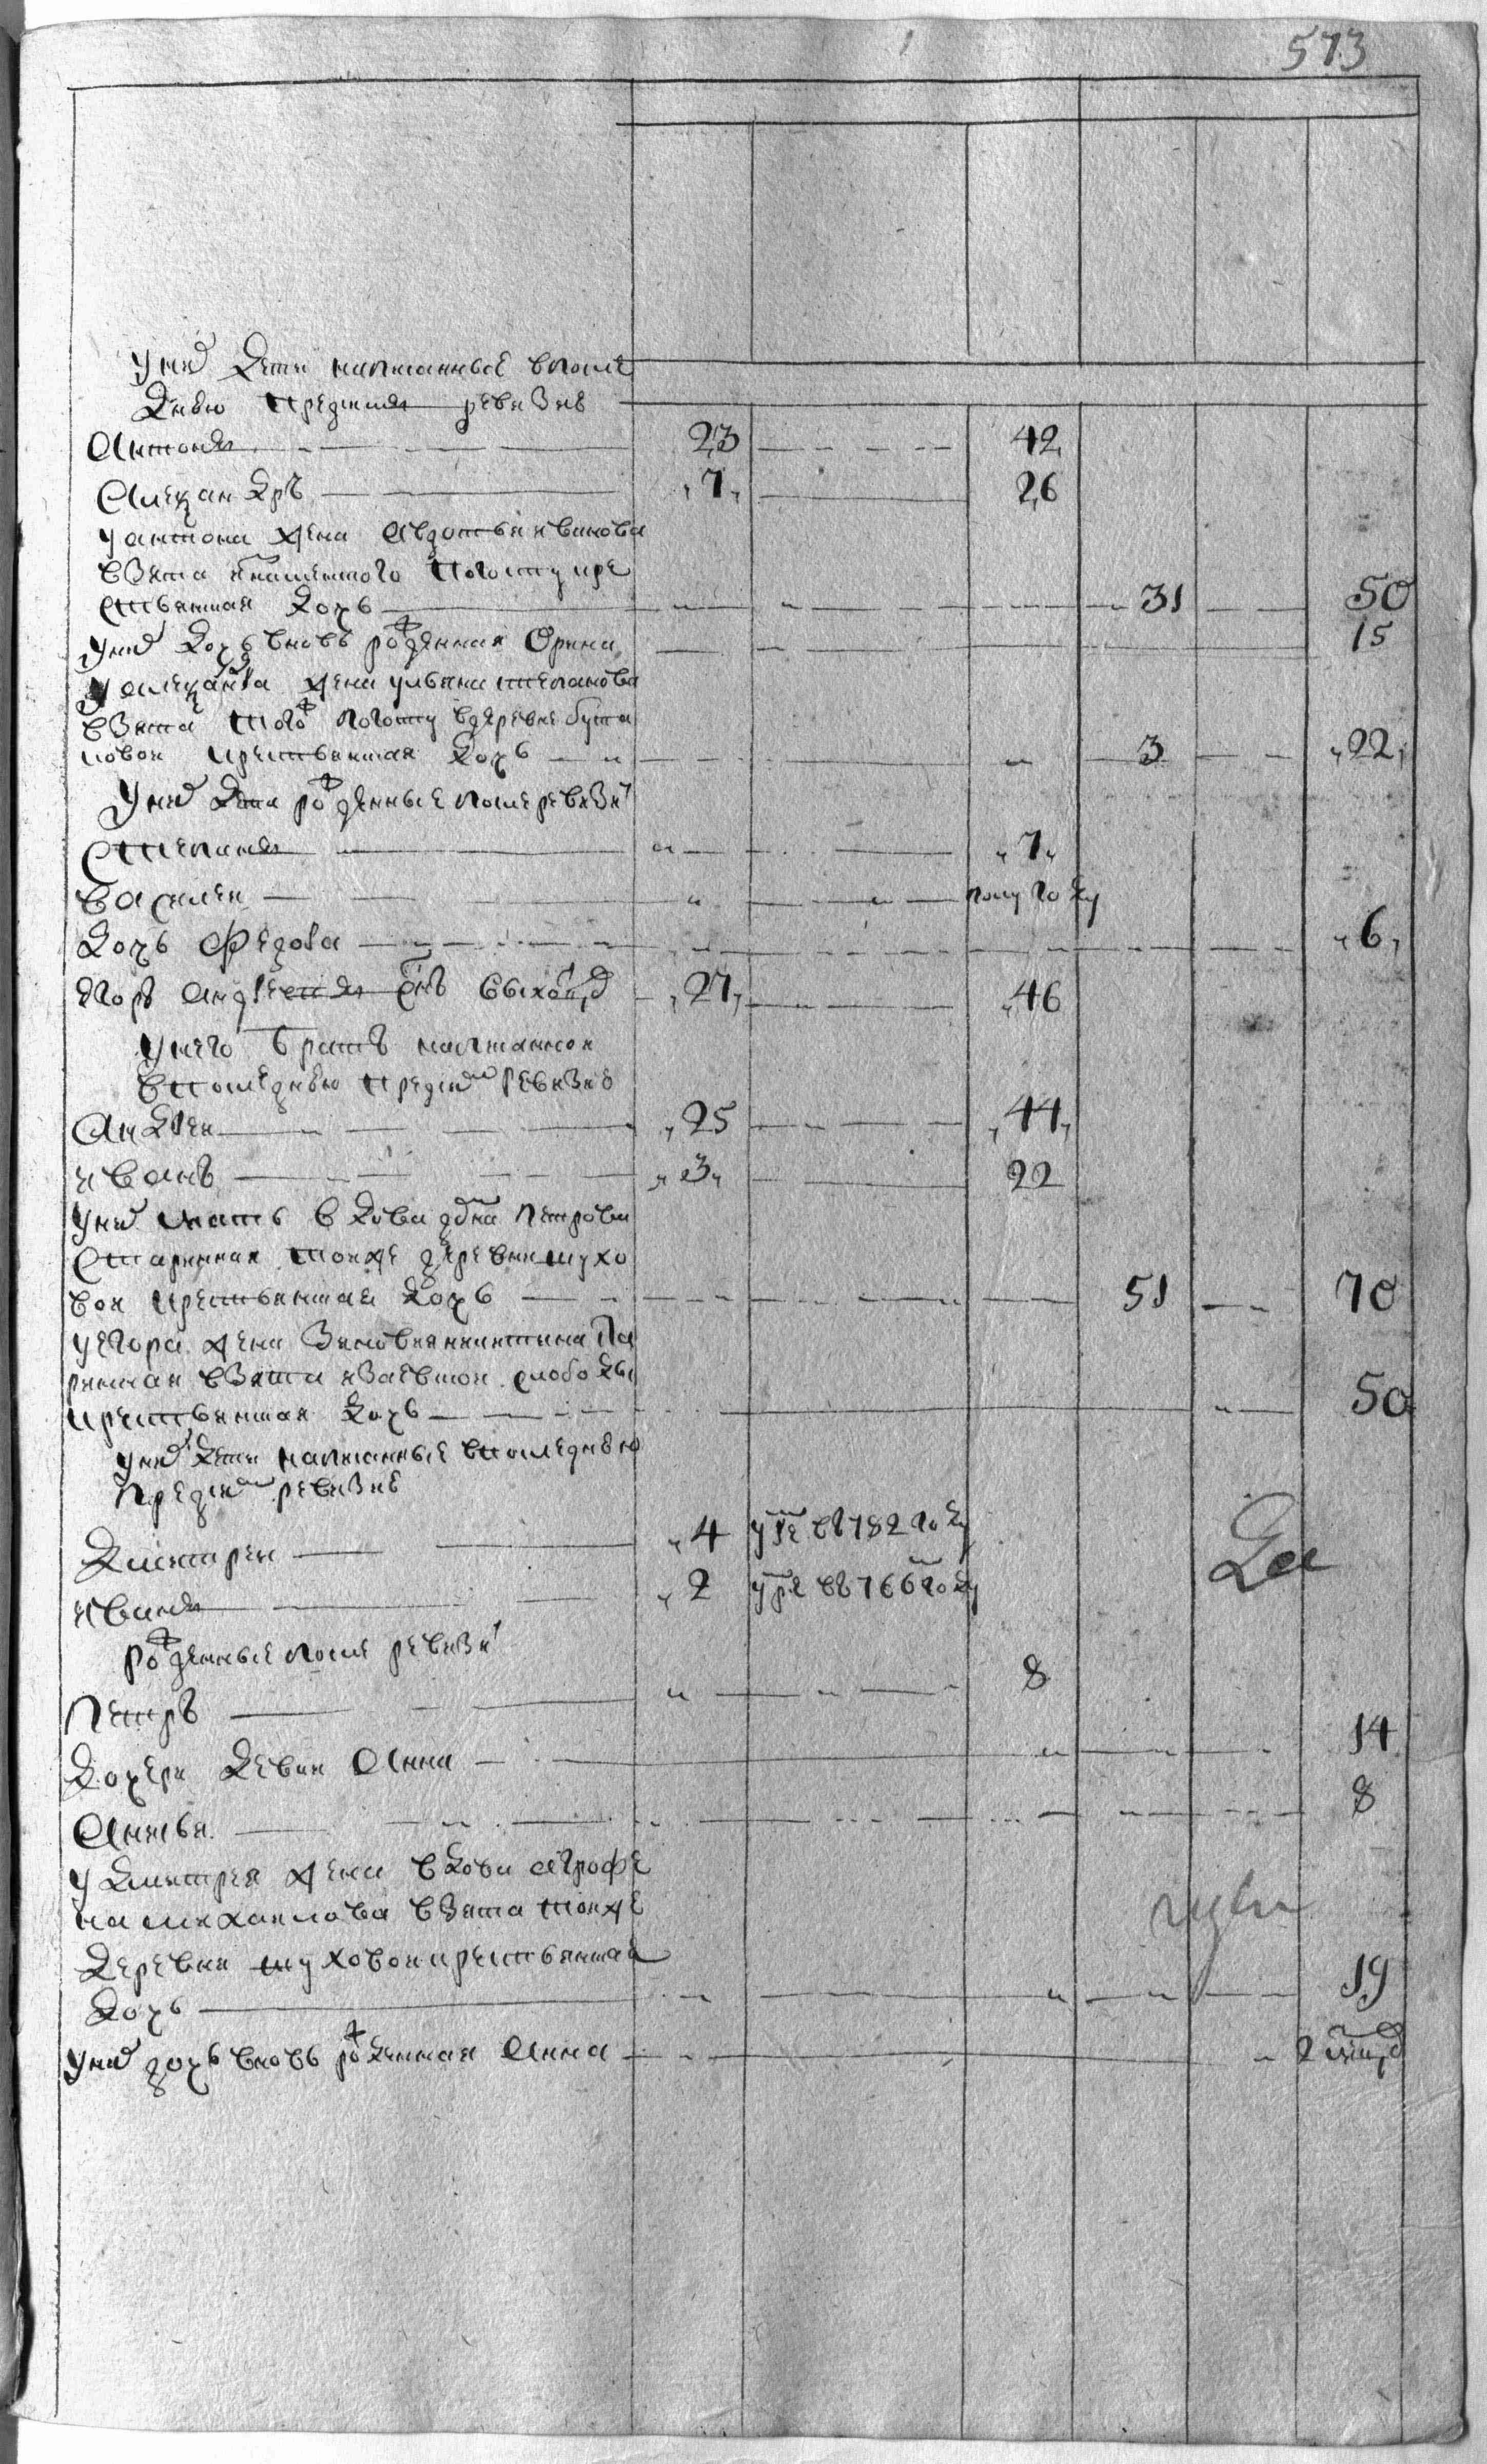 573
у них дети написанные в после
днею пред сим ревизию
Антонъ 23 42
Александръ 7 26
у антона жена авдотья иванова
взята крестьянская дочь 31 50
у них дочь вновь рожденная Орина 15
у александра жена ульяна степанова
взята того ж погосту в деревне бута
ковой крестьянская дочь 3 22
у них дети рожденные после ревизи
Степанъ 7
василей полугоду
дочь федора 6
Егоръ андреевъ снъ 27 46
у него братъ написанной
в последнею пред сим ревизию
Андрей 25 44
иванъ 3 22
у них мать вдова петрова
старинная той же деревни шухо
вой крестьянская дочь 51 70
у егора жена Зеновея никитина ста
ринная взята из слободы
крестьянская дочь 50
у них дети написанные в последнею
пред сим ревизию
Дмитрей 4 умре въ 782 году
иванъ 2 умре въ 766 году
рожденные после ревизи
Петръ 8
Дочери девки Анна 14
Анисья 8
у дмитрея жена вдова агрофе
на михаилова взята той же
деревни шуховой крестьянская
дочь 19
у них дочь вновь рожденная Анна 2